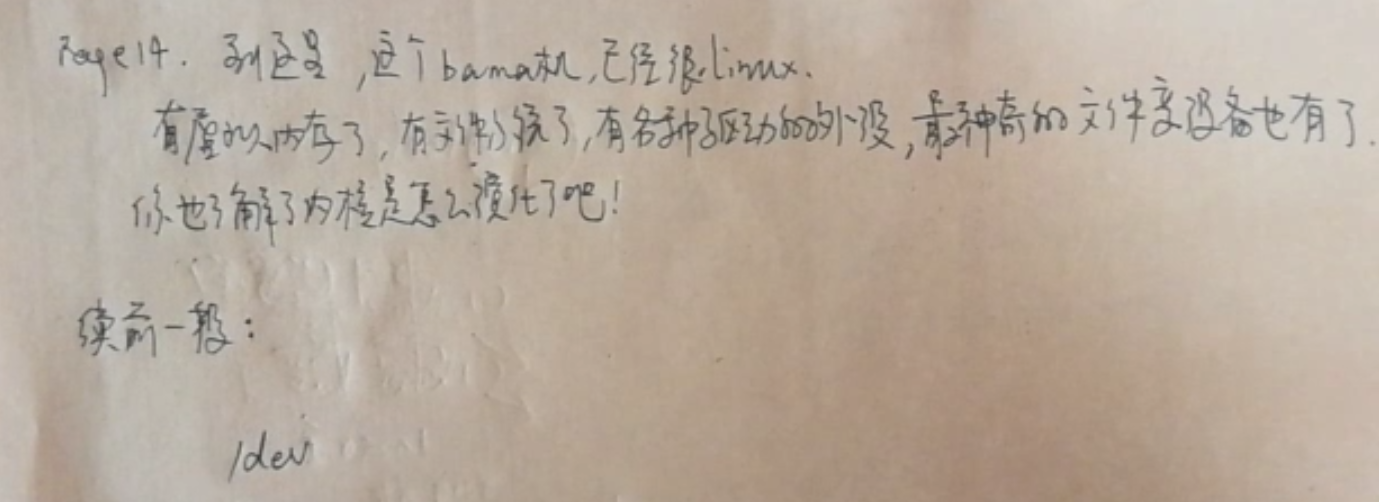 Page 14. 到这里,这个bama机,已经很linux.
有虚以内存了,有文件系统了,有各种驱动的的外设,最神奇的文件变设备也有了.
你也了解了内核是怎么演化了吧!
续前一段:
/dev